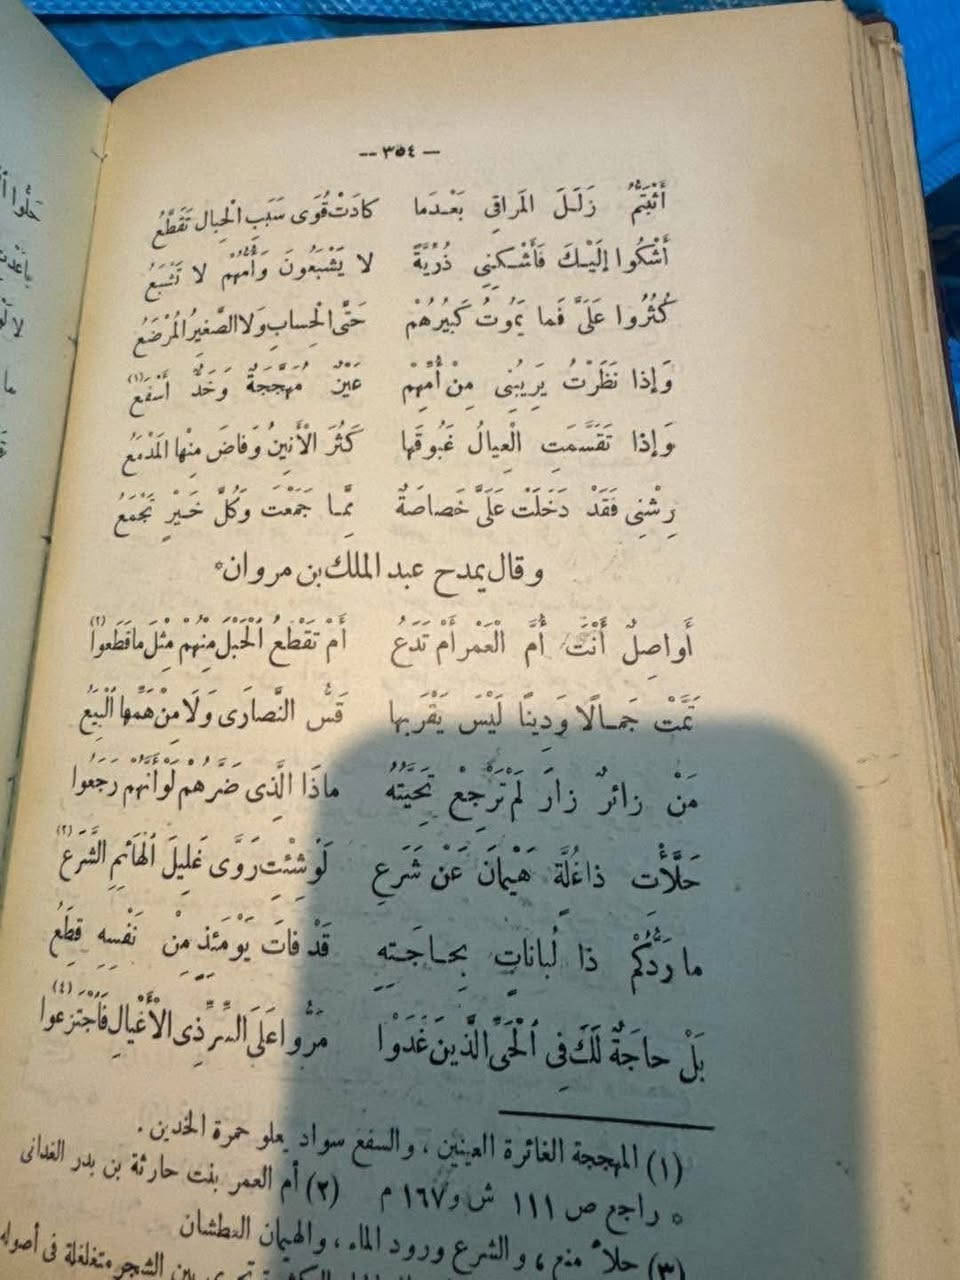 — ٣٥٤ —
أَثْبَتُّمُ زَلَلَ المَراقِي بَعْدَمَا كادَتْ قُوَى سَبَبِ الْحِبالِ تَقَطَّعُ
أَشْكُوا إِلَيْكَ فَأَشْكِنِي ذُرِّيَّةً لا يَشْبَعُونَ وَأُمُّهُمْ لا تَشْبَعُ
كَثُرُوا عَلَيَّ فَما يَمُوتُ كَبِيرُهُمْ حَتَّى الْحِسابِ وَلا الصَّغِيرُ المُرْضَعُ
وَإِذا نَظَرْتُ يَرِيبُنِي مِنْ أُمِّهِمْ عَيْنٌ مُهَجِّجَةٌ وَخَدٌّ أَسْفَعُ (١)
وَإِذا تَقَسَّمَتِ الْعِيالُ غَبُوقَها كَثُرَ الْأَنِينُ وَفاضَ مِنْها المَدْمَعُ
رِشْنِي فَقَدْ دَخَلَتْ عَلَيَّ خَصاصَةٌ مِمَّا جَمَعْتَ وَكُلَّ خَيْرٍ تَجْمَعُ
وقال يمدح عبد الملك بن مروان*
أَواصِلٌ أَنْتَ أُمَّ الْعَمْرِ أَمْ تَدَعُ أَمْ تَقْطَعُ الْحَبْلَ مِنْهُمْ مِثْلَ ما قَطَعُوا (٢)
تَمَّتْ جَمالًا وَدِينًا لَيْسَ يَقْرَبُها قَسُّ النَّصارَى وَلَا مِنْ هَمِّها الْبِيَعُ
مَنْ زائِرٌ زارَ لَمْ تَرْجِعْ تَحِيَّتُهُ ماذَا الَّذِي ضَرَّهُمْ لَوْ أَنَّهُمْ رَجَعُوا
حَلَّأْتِ ذا غُلَّةٍ هَيْمانَ عَنْ شَرَعٍ لَوْ شِئْتِ رَوَّى غَلِيلَ الْهَائِمِ الشَّرَعُ (٣)
ما رَدُّكُمْ ذا لُباناتٍ بِحاجَتِهِ قَدْ فاتَ يَوْمَئِذٍ مِنْ نَفْسِهِ قِطَعُ
بَلْ حاجَةٌ لَكَ فِي الْحَيِّ الَّذِينَ غَدَوْا مَرُّوا عَلَى السِّرِّ ذِي الْأَغْيالِ فَاجْتَزَعوا (٤)
(١) المهججة الغائرة العينين ، والسفع سواد يعلو حمرة الخدين .
* راجع ص ١١١ ش و١٦٧ م (٢) أم العمر بنت حارثة بن بدر الغدانى
(٣) حلأ منع ، والشرع ورود الماء ، والهيمان العطشان
بين الشجر متغلغلة فى أصوله